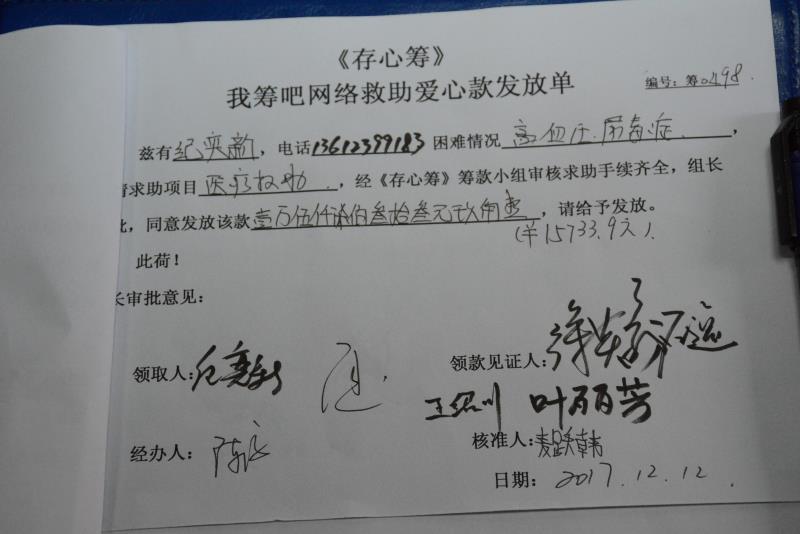 《存心筹》
我筹吧网络救助爱心款发放单
编号：筹0498.
兹有纪奕新，电话13612399183困难情况高血压.尿毒症.，
请求助项目医疗救助.，经《存心筹》筹款小组审核求助手续齐全，组长
此，同意发放该款壹万伍仟柒佰叁拾叁元玖角整，请给予发放。
(￥15733.9元).
此荷！
长审批意见：
领取人：纪奕新
领款见证人：
王绍川 叶丽芳
经办人：陈
核准人：麦跃韩
日期：2017.12.12.